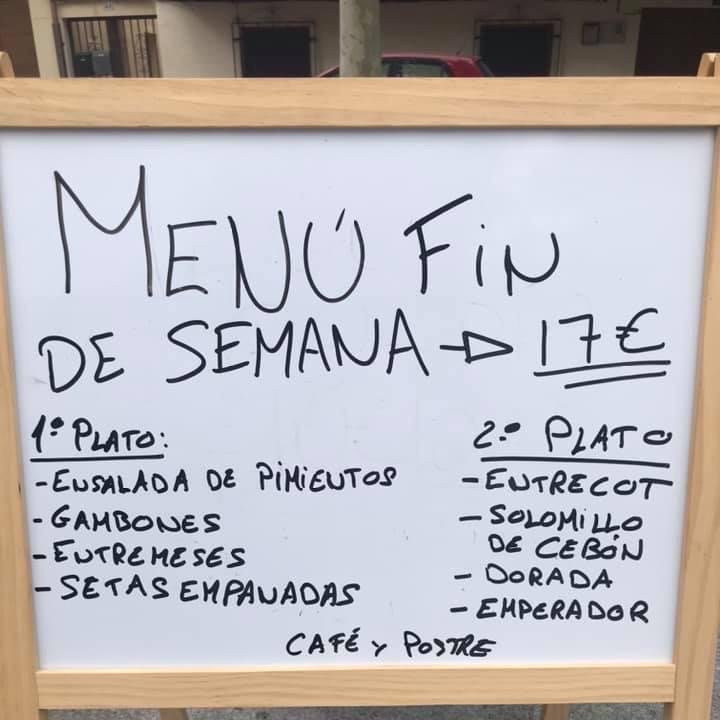 MENÚ FIN
DE SEMANA → 17€
1º PLATO:
- ENSALADA DE PIMIENTOS
- GAMBONES
- ENTREMESES
- SETAS EMPANADAS
2.º PLATO
- ENTRECOT
- SOLOMILLO
DE CEBÓN
- DORADA
- EMPERADOR
CAFÉ Y POSTRE